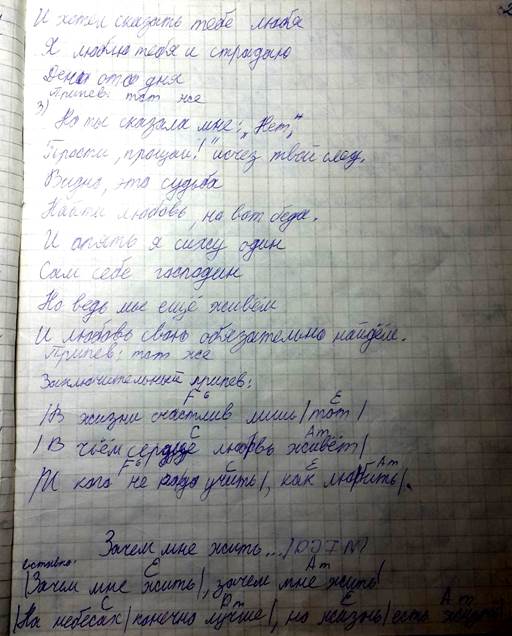 И хотел сказать тебе любя
Я люблю тебя и страдаю
День ото дня
Припев: тот же
3) Но ты сказала мне: „Нет,"
Прости, прощай!" исчез твой след.
Видно, это судьба
Найти любовь, но вот беда.
И опять я сижу один
Сам себе господин
Но ведь мы ещё живём
И любовь свою обязательно найдём.
Припев: тот же
Заключительный припев:
F6 E
|В жизни счастлив лишь|тот|
C Am
|В чьём сердце любовь живёт|
F6 C E Am
И кого не надо учить|, как любить|.
Зачем мне жить...
E Am
|Зачем мне жить|, зачем мне жить|
C Dm E Am
|На небесах|конечно лучше|, но жизнь|есть